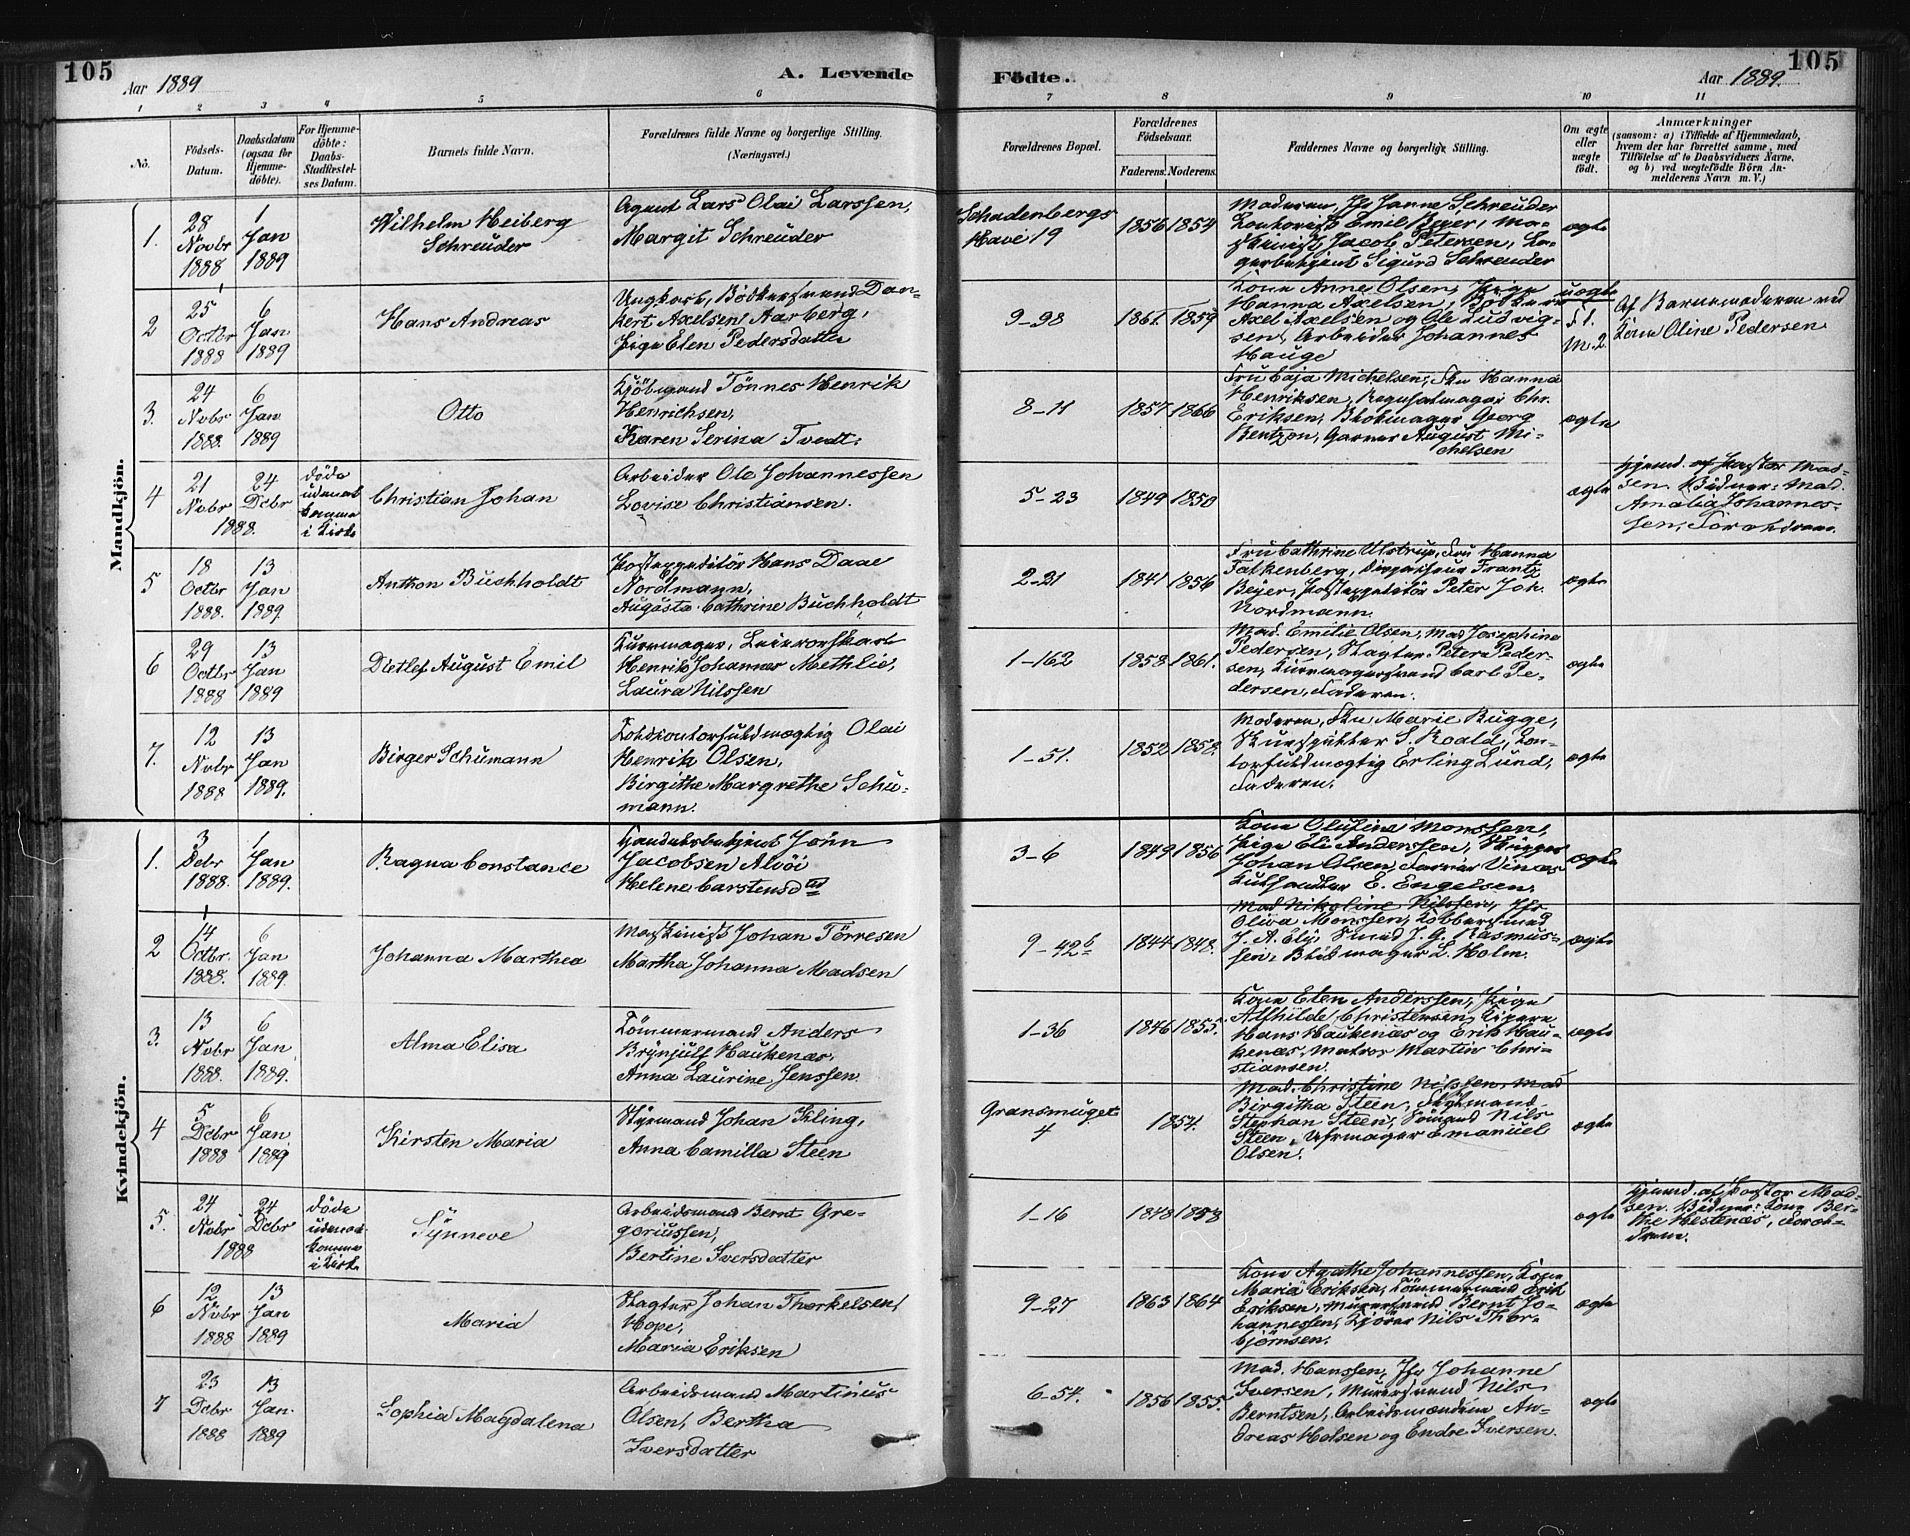 105
Aar 1889
A. Levende
Födte.
Aar 1889.
105
1 2 3 4 5 6 7 8 9 10 11
No.
Födsels-
Datum.
Daabsdatum
(ogsaa for
Hjemme-
döbte).
For Hjemme-
döbte:
Daabs-
Stadfestel-
ses Datum.
Barnets fulde Navn.
Forældrenes fulde Navne og borgerlige Stilling.
(Næringsvei.)
Forældrenes Bopæl.
Forældrenes
Födselsaar.
Faderens. Moderens.
Faddernes Navne og borgerlige Stilling.
Om ægte
eller
uægte
födt.
Anmærkninger
(saasom: a) i Tilfælde af Hjemmedaab,
hvem der har forrettet samme, med
Tilföielse af to Daabsvidners Navne,
og b) ved uægtefödte Börn An-
melderens Navn m. V.)
Mandkjön.
1.
28
Novbr
1888
1
Jan
1889
Wilhelm Heiberg
Schreuder
Agent Lars Olai Larssen,
Margit Schreuder
Schadenbergs
Have 19
1856 1854
Moderen, Jfr Janne Schreuder
Kontorist Emil Beyer, Ma-
skinist Jacob Petersen, La-
gerbetjent Sigurd Schreuder
ægte
2
25
Octbr
1888
6
Jan
1889
Hans Andreas
Ungkarl, Bödkersvend Dan-
kert Axelsen Aarberg,
Pige Elen Pedersdatter
9-98
1861. 1859
Kone Anne Olsen, Pige
Hanna Axelsen, Bödkere
Axel Axelsen og Ole Ludvig-
sen, Arbeider Johannes
Hauge
uægte
F 1.
M. 2.
Af Barnemoderen ved
Kone Oline Pedersen
3.
24
Novbr
1888.
6
Jan
1889
Otto
Kjöbmand Tönnes Henrik
Henrichsen,
Karen Serina Tvedt.
8-11
1857 1866
Fru Caja Michelsen, Fru Hanna
Henriksen, Rebslager Chr.
Eriksen, Blokmager Georg
Bentzon, Garver August Mi-
chelsen
ægte
4
21
Novbr
24
Decbr
1888.
döde
uden at
komme
i Kirke
Christian Johan
Arbeider Ole Johannessen
Lovise Christiansen.
5-23
1849 1850
ægte
Hjemd. af Pastor Mad-
sen. Vidner: Mad.
Amalia Johannes-
sen, Forældrene.
5
18
Octbr
1888.
13
Jan
1889.
Anthon Buchholdt
Postexpeditör Hans Daae
Nordmann,
Augusta Cathrine Buchholdt
2-21
1841 1856
Fru Cathrine Ulstrup, Fru Hanna
Falkenberg, Dispacheur Frantz
Beyer, Postexpeditör Peter Joh.
Nordmann.
ægte
6
29
Octbr
1888
13
Jan
1889
Ditlef August Emil
Kurvmager, Leiervorskarl
Henrik Johannes Methlie,
Laura Nilssen
1-162
1858 1861.
Mad. Emilie Olsen, Mad Josephine
Pedersen, Slagter Peter Peder-
sen, Kurvmagersvend Carl Pe-
dersen, Faderen.
ægte
7.
12
Novbr
1888
13
Jan
1889.
Birger Schumann
Toldkontorfuldmægtig Olai
Henrik Olsen,
Birgithe Margrethe Schu-
mann.
1-51.
1852 1858.
Moderen, Fru Marie Bugge,
Skuespiller S. Roald, Kon-
torfuldmægtig Erling Lund,
Faderen.
ægte
Kvindekjön.
1.
3
Decbr
1888.
1
Jan
1889.
Ragna Constance
Handelsbetjent John
Jacobsen Alvöi
Helene Carstensdtr
3-6
1849 1856
Kone Olufine Monssen,
Pige Eli Anderssen, Skipper
Johan Olsen, Farver Vinæs
Kulhandler E. Engelsen.
ægte
2
14
Octbr.
1888.
6
Jan
1889.
Johanna Marthea
Maskinist Johan Törresen
Martha Johanna Madsen
9-42b
1844 1848.
Mad Nikoline Nilssen, Jfr
Oliva Monssen, Kobbersmed
J. A. Ely, Smed J. G. Rasmus-
sen, Blikmager L. Holm.
ægte
3.
13
Novbr
1888.
6
Jan
1889.
Alma Elisa
Tömmermand Anders
Brynjulf Haukenæs,
Anna Laurine Jenssen
1-36
1846 1855.
Kone Elen Anderssen, Pige
Alfhilde Christensen, Kipere
Hans Haukenæs og Erik Hau-
kenæs, Matros Martin Chri-
stiansen.
ægte
4
5
Decbr
1888
6
Jan
1889
Kirsten Maria
Styrmand Johan Kling,
Anna Camilla Steen
Gransmuget
4
1854.
Mad. Christine Nilssen, Mad
Birgitha Steen, Styrmand
Stephan Steen, Sömand Nils
Steen, Uhrmager Emanuel
Olsen.
ægte
5.
24
Novbr
24
Decbr
1888
döde
uden at
komme
i Kirke
Synneve
Arbeidsmand Bernt Gre-
goriussen,
Bertine Iversdatter
1-16
1848 1853
ægte
Hjemd. af Pastor Mad-
sen. Vidner: Kone Ber-
the Hestenæs, Foræl-
drene.
6
12
Novbr
1888
13
Jan
1889
Maria
Slagter Johan Thorkelsen
Hope,
Maria Eriksen
9-27
1863 1864
Kone Agathe Johannessen, Kone
Maria Eriksen, Tömmermand Erik
Eriksen, Murersvend Bernt Jo-
hannessen, Kjörer Nils Thor-
björnsen.
ægte
7
23
Decbr
1888
13
Jan.
1889
Sophia Magdalena
Arbeidsmand Martinus
Olsen, Bertha
Iversdatter
6-54.
1856 1855.
Mad. Hanssen, Jfr Johanne
Iversen, Murersvend Nils
Berntsen, Arbeidsmændene An-
dreas Halsen og Endre Iversen.
ægte